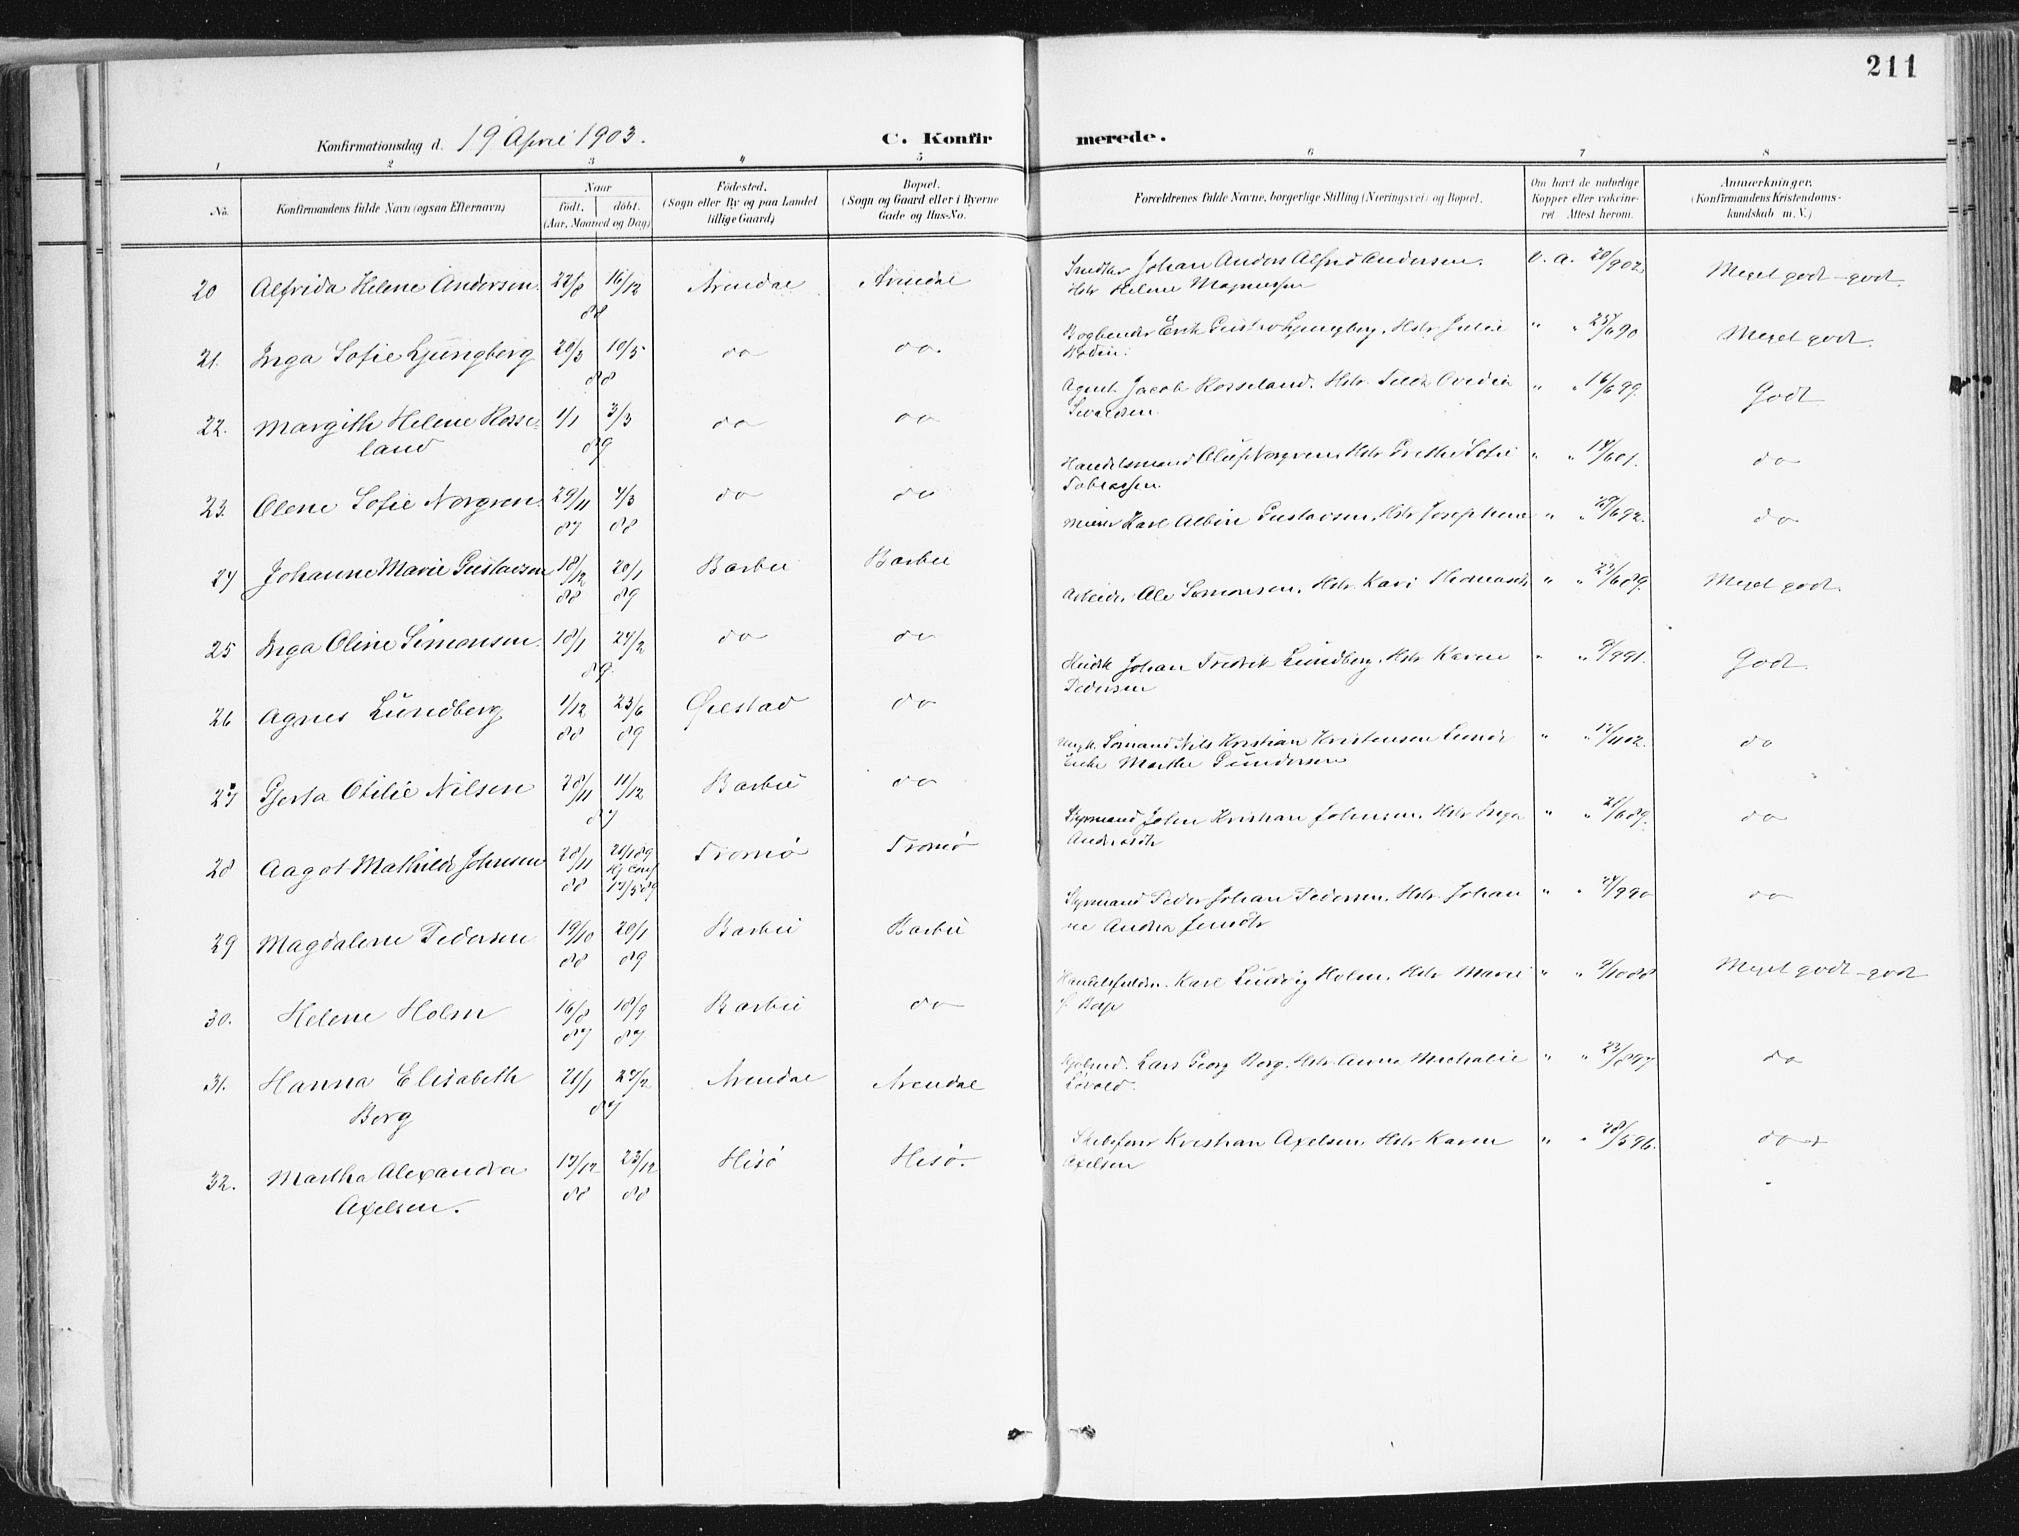 211
Konfirmationsdag d. 19 April 1903.
C. Konfirmerede.
1 2 3 4 5 6 7 8
No.
Konfirmandens fulde Navn (ogsaa Efternavn)
Naar
født, døbt.
(Aar, Maaned og Dag)
Fødested.
(Sogn eller By og paa Landet
tillige Gaard)
Bopæl.
(Sogn og Gaard eller i Byerne
Gade og Hus-No.
Forældrenes fulde Navne, borgerlige Stilling (Næringsvei) og Bopæl.
Om havt de naturlige
Kopper eller vakcine-
ret Attest herom.
Anmærkninger.
(Konfirmandens Kristendoms-
kundskab m. V.)
20 Alfrida Helene Andersen. 22/8 16/12 Arendal Arendal Johan Anders Alfred Andersen. v. a. 20/902. Meget godt-godt.
88 Hstr Helene Magnussen
21. Inga Sofie Ljungberg 20/3 10/5 do do. Bogbinder Erik Gustav Ljungberg. Hstr Julie " " 25/690 Meget godt.
88
22. Margith Helene Rosse- 1/1 3/3 do do Agent Jacob Rosseland. Hstr Ovedia " " 16/699. Godt
land 89
23. Olene Sofie Norgren 29/11 4/3 do do Handelsmand Oluf Norgren, Hstr Grethe Sofie " " 14/601. do
87 88 Tobiassen
24 Johanne Marie Gustavsen 18/12 20/1 Barbu Barbu Karl Albin Gustavsen, Hstr Josephine " " 28/692. do
88 89
25 Inga Oline Simonsen. 18/1 24/2 do do Arbeid. Ole Simonsen, Hstr. Kari " " 23/689. Meget godt.
89
26 Agnes Lundberg 1/12 23/6 Øiestad do Johan Fredrik Lundberg, Hstr Karen " " 9/991. Godt.
88 89 Pedersen
27 Gjerta Otilie Nilsen 28/11 11/12 Barbu do Nils Kristian Kristensen " " 12/402. do
87 Enke Marthe Gundersen
28 Aagot Mathilde Johnsen 28/11 20/1 89 Tromø Tromø Styrmand John Kristian Johnsen, Hstr Inga " " 21/689. do
88 17/5 89
29 Magdalene Pedersen 19/10 20/1 Barbu Barbu Styrmand Peder Johan Pedersen, Hstr. Johan " " 24/990 do
88 89 ne Andrea
30. Helene Holm 16/8 18/9 Barbu do Karl Ludvig Holm, Hstr Marie " " 9/1088 Meget godt-godt
87 87
31. Hanna Elisabeth 21/1 27/2 Arendal Arendal Lars Georg Borg. Hstr. Anna " " 23/897 do
Borg 87
32. Martha Alexandra 13/12 23/12 Hisø Hisø. Kristian Axelsen, Hstr Karen " " 28/596. do
Axelsen. 88 88 Axelsen